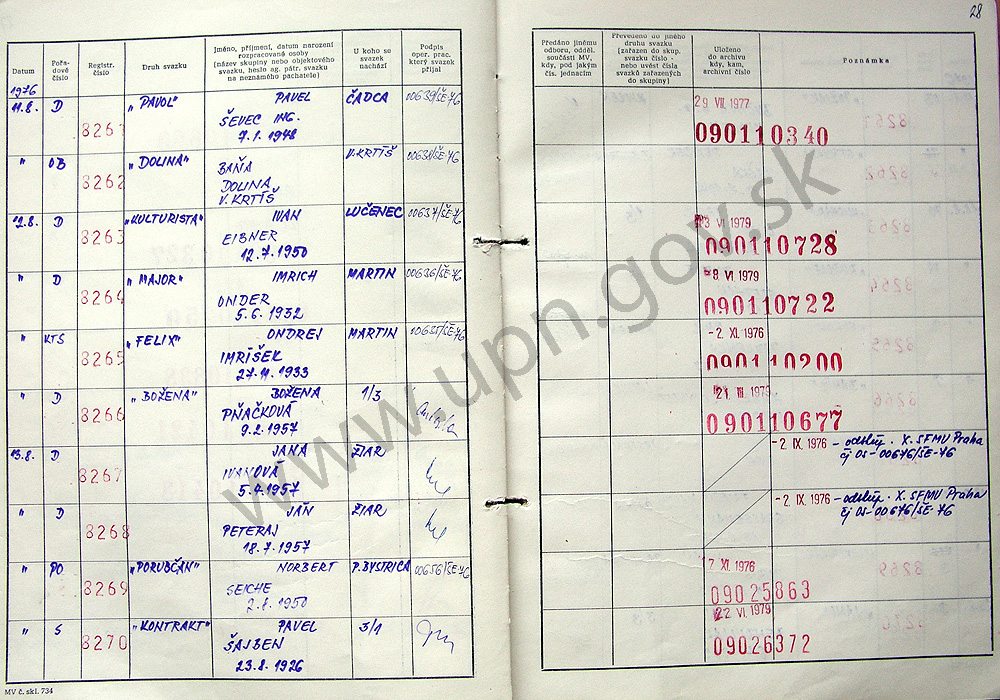 28
Datum
Pořa-
dové
číslo
Registr.
číslo
Druh svazku
Jméno, příjmení, datum narození
rozpracované osoby
(název skupiny nebo objektového
svazku, heslo ag. pátr. svazku
na neznámého pachatele)
U koho se
svazek
nachází
Podpis
oper. prac.
který svazek
přijal
Předáno jinému
odboru, odděl.
součásti MV,
kdy, pod jakým
čís. jednacím
Převedeno do jiného
druhu svazku
(zařazen do skup.
svazku číslo -
nebo uvést čísla
svazků zařazených
do skupiny)
Uloženo
do archivu
kdy, kam,
archivní číslo
Poznámka
1976
11.8. D 8261 „PAVOL" PAVEL ČADCA 00639/ŠE-76
ŠEVEC ING.
7.1.1948
29 VII. 1977
090110340
" OB 8262 „DOLINA" BAŇA V.KRTÍŠ 00638/ŠE-76
DOLINA
V.KRTÍŠ
12.8. D 8263 „KULTURISTA" IVAN LUČENEC 00637/ŠE-76
EIBNER
12.7.1950
VI 1979
090110728
" D 8264 „MAJOR" IMRICH MARTIN 00636/ŠE-76
ONDER
5.6.1932
8 VI 1979
090110722
" KTS 8265 „FELIX" ONDREJ MARTIN 00635/ŠE-76
IMRÍŠEK
27.11.1933
-2. XI. 1976
090110200
" D 8266 „BOŽENA" BOŽENA 1/3
PŇAČKOVÁ
9.2.1957
21. III 1979
090110677
13.8. D 8267 JANA ŽIAR
IVANOVÁ
5.4.1957
-2. IX. 1976 – odstúp. X. SFMV Praha
čj OS-00676/ŠE-76
" D 8268 JÁN ŽIAR
PETERAJ
18.7.1957
-2. IX. 1976 – odstúp. X. SFMV Praha
čj OS-00676/ŠE-76
" PO 8269 „PORUBČAN" NORBERT P.BYSTRICA 00656/ŠE-76
SEICHE
2.8.1950
7 XI. 1976
09025863
" S 8270 „KONTRAKT" PAVEL 3/1
ŠAJBEN
23.2.1926
22. VI. 1979
09026372
MV č. skl. 734
www.upn.gov.sk